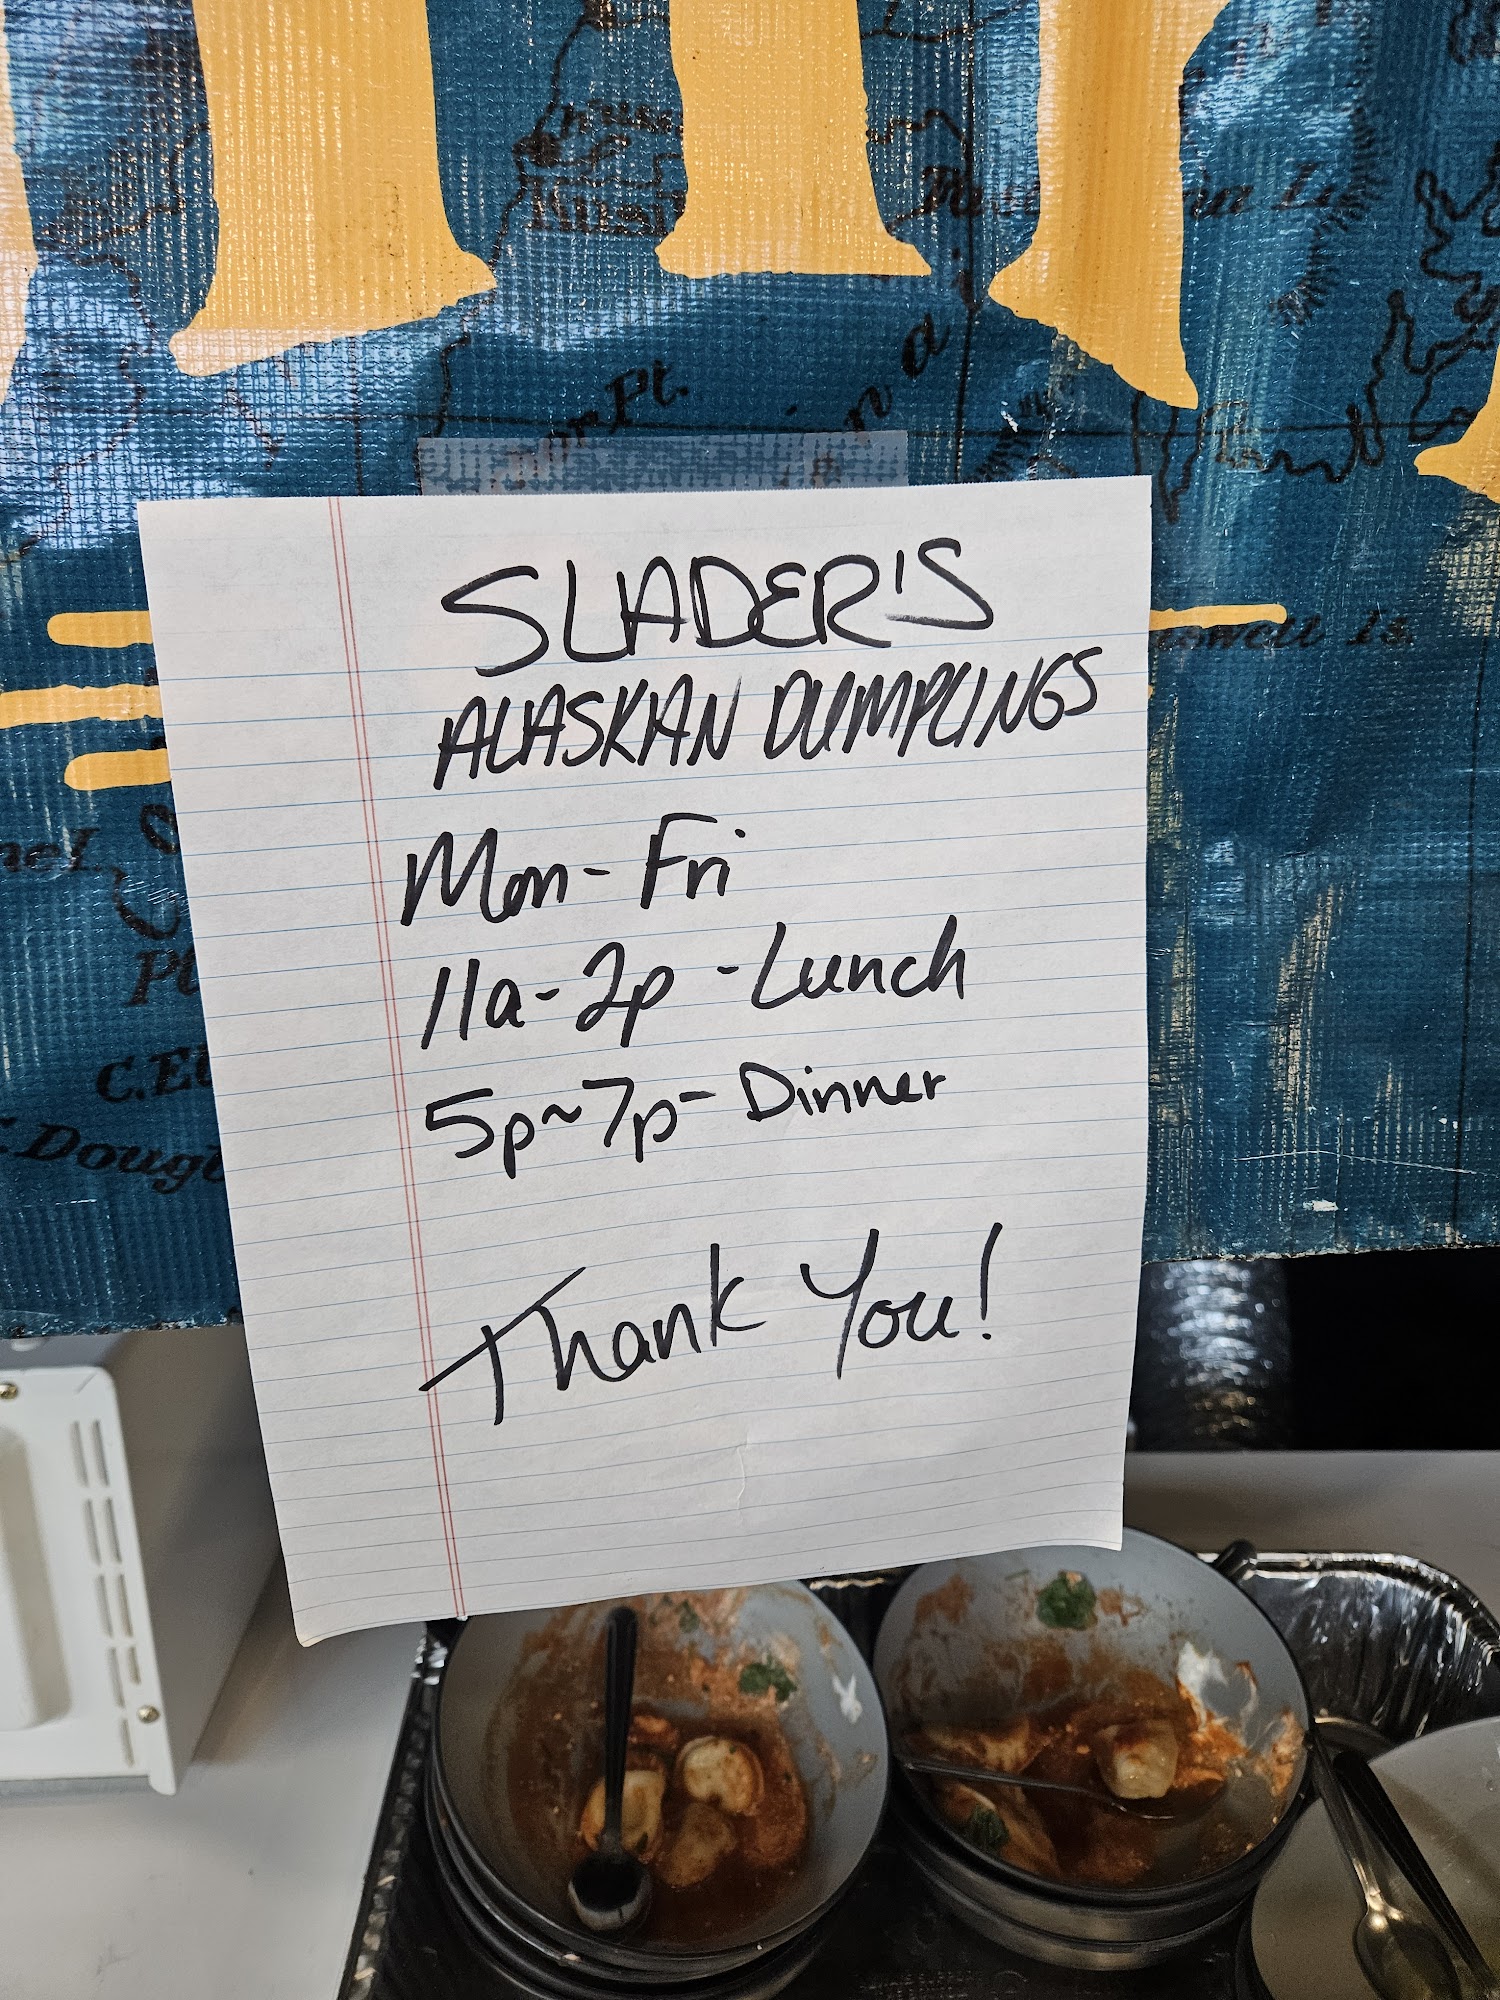 Pt.
SLADER'S
ALASKAN DUMPLINGS
Mon-Fri
11a-2p-Lunch
5p~7p-Dinner
Thank You!